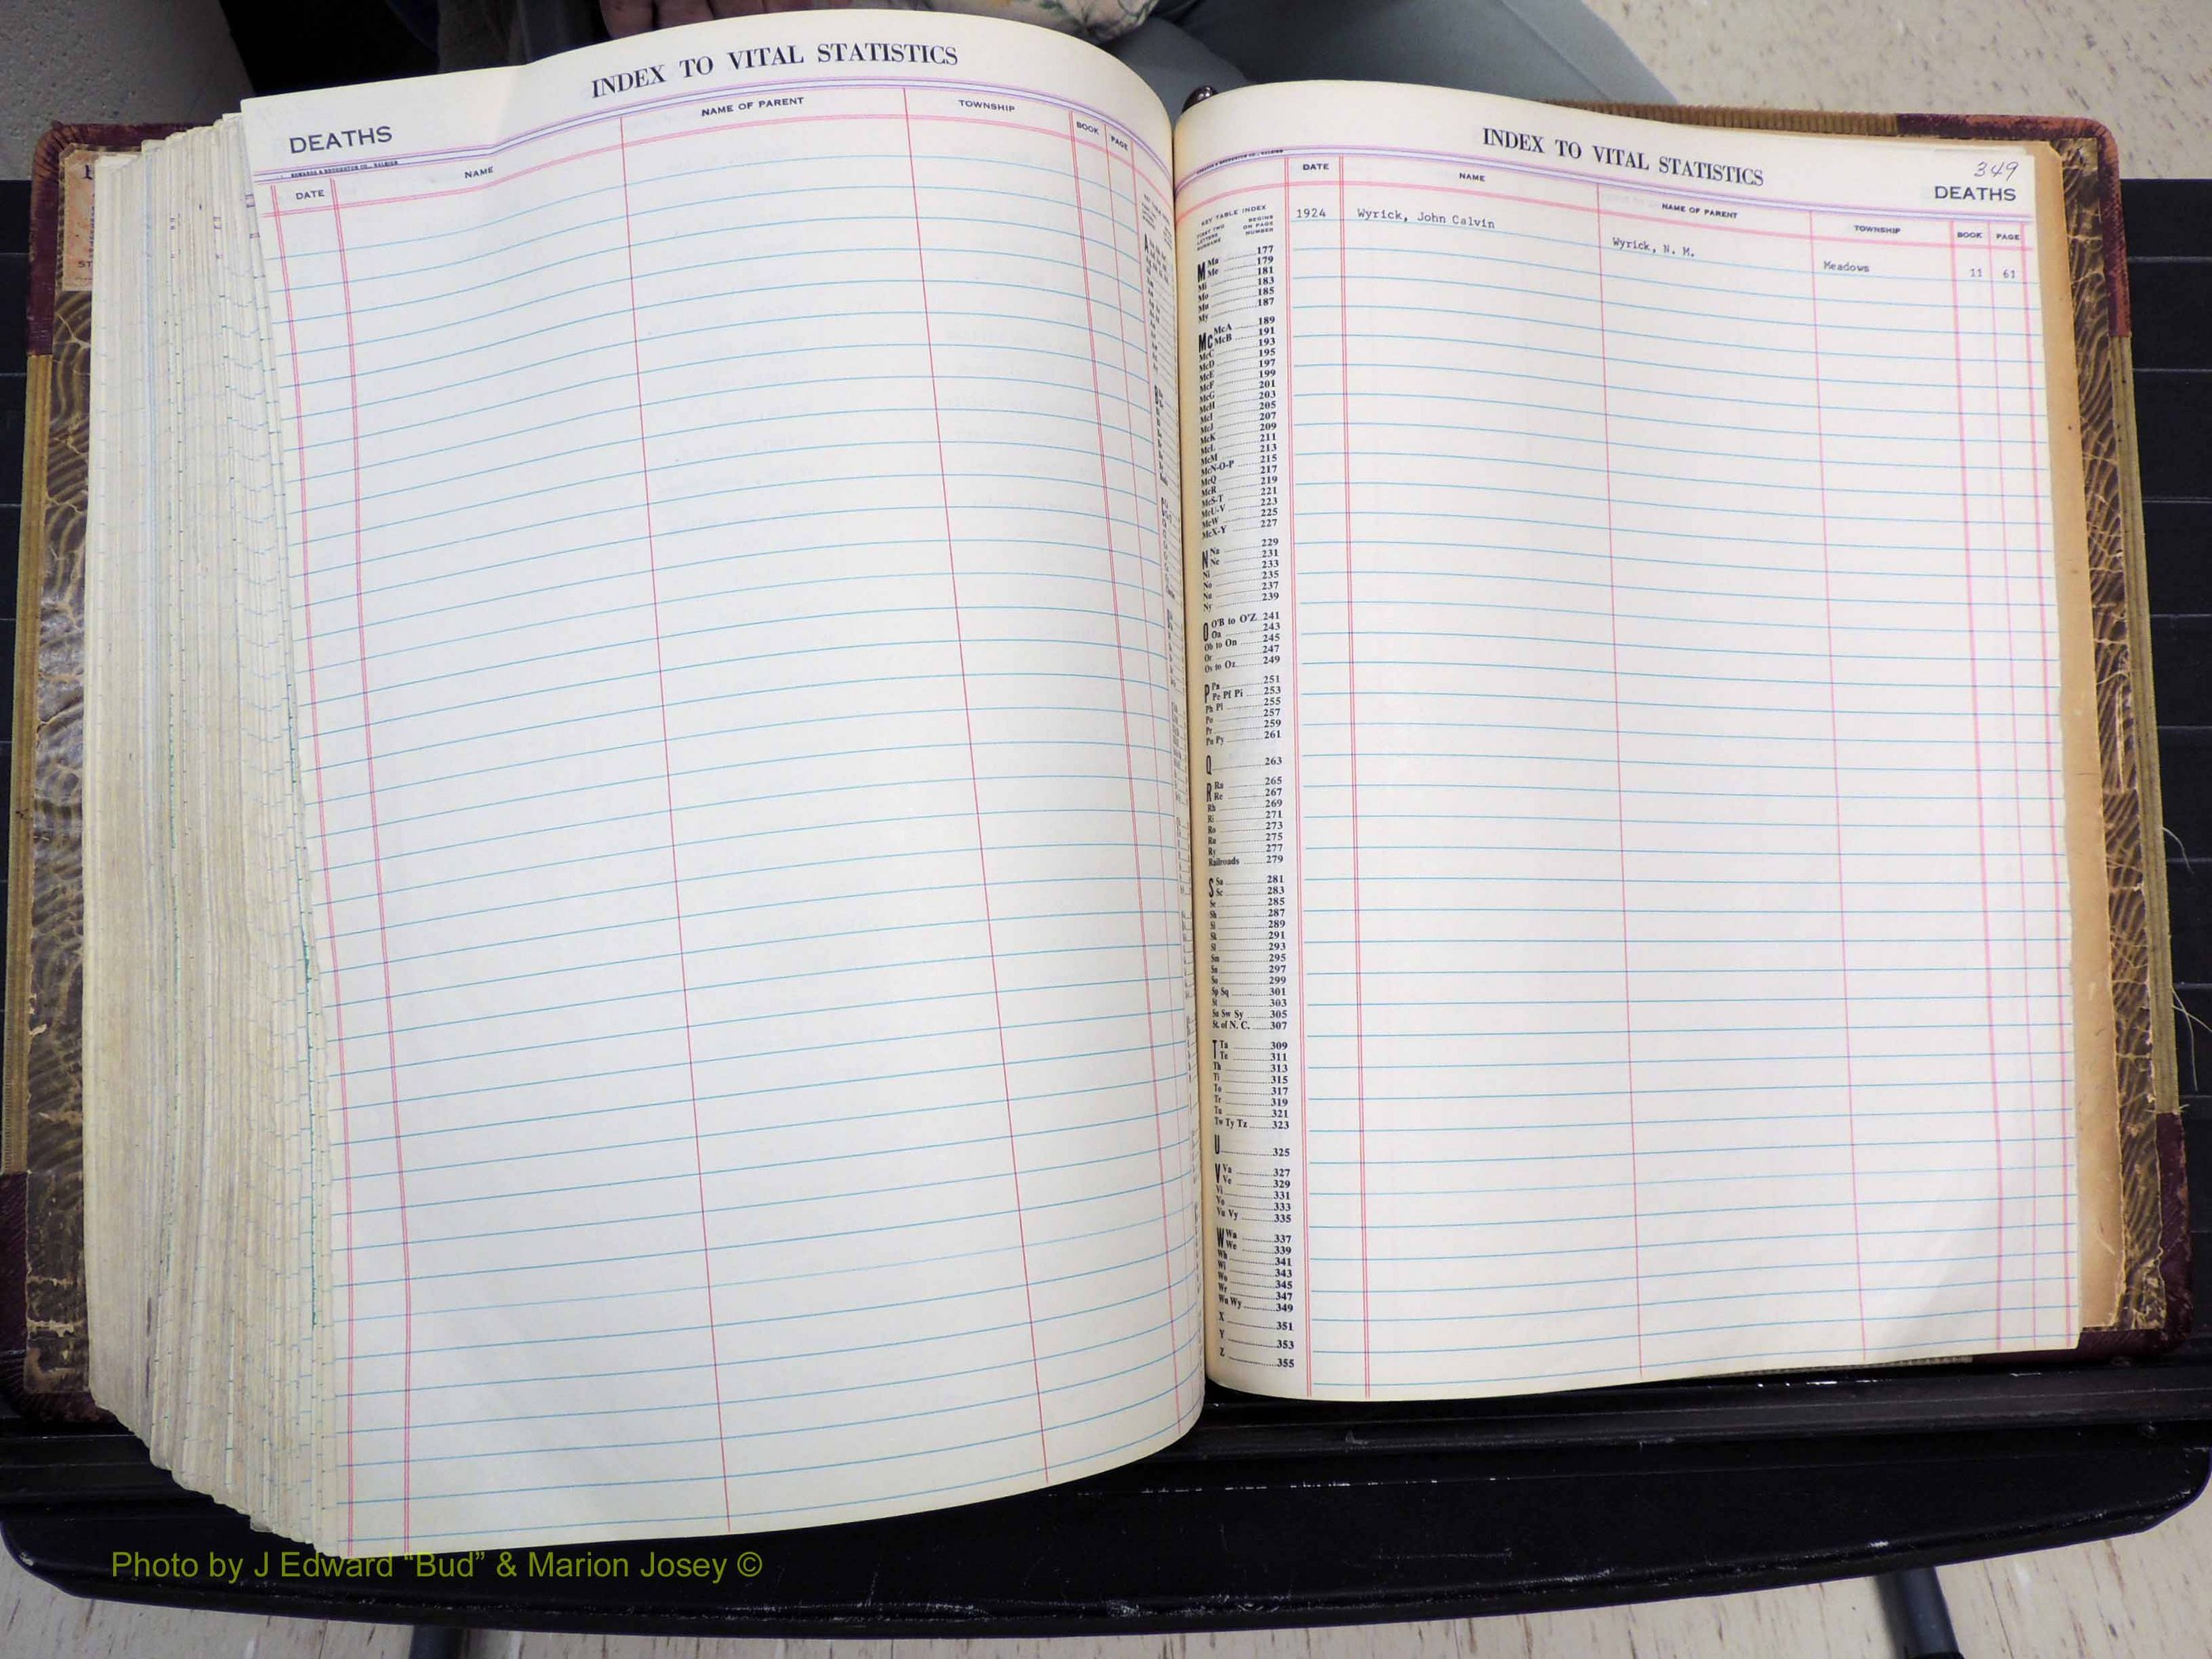 INDEX TO VITAL STATISTICS
DEATHS
EDWARDS & BROUGHTON CO., RALEIGH
DATE NAME NAME OF PARENT TOWNSHIP BOOK PAGE
INDEX TO VITAL STATISTICS
349
DEATHS
DATE NAME NAME OF PARENT TOWNSHIP BOOK PAGE
1924 Wyrick, John Calvin Wyrick, N. M. Meadows 11 61
KEY TABLE INDEX
FIRST TWO LETTERS SURNAME BEGINS ON PAGE NUMBER
M Ma 177
Me 179
Mi 181
Mo 183
Mu 185
My 187
Mc McA 189
McB 191
McC 193
McD 195
McE 197
McF 199
McG 201
McH 203
McI 205
McJ 207
McK 209
McL 211
McM 213
McN-O-P 215
McQ 217
McR 219
McS-T 221
McU-V 223
McW 225
McX-Y 227
N Na 229
Ne 231
Ni 233
No 235
Nu 237
Ny 239
O O'B to O'Z 241
Oa 243
Ob to On 245
Or 247
Os to Oz 249
P Pa 251
Pe Pf Pi 253
Ph Pl 255
Po 257
Pr 259
Pu Py 261
Q 263
R Ra 265
Re 267
Rh 269
Ri 271
Ro 273
Ru 275
Ry 277
Railroads 279
S Sa 281
Sc 283
Se 285
Sh 287
Si 289
Sk 291
Sl 293
Sm 295
Sn 297
So 299
Sp Sq 301
St 303
Su Sw Sy 305
St. of N. C. 307
T Ta 309
Te 311
Th 313
Ti 315
To 317
Tr 319
Tu 321
Tw Ty Tz 323
U 325
V Va 327
Ve 329
Vi 331
Vo 333
Vu Vy 335
W Wa 337
We 339
Wh 341
Wi 343
Wo 345
Wr 347
Wu Wy 349
X 351
Y 353
Z 355
Photo by J Edward “Bud” & Marion Josey ©